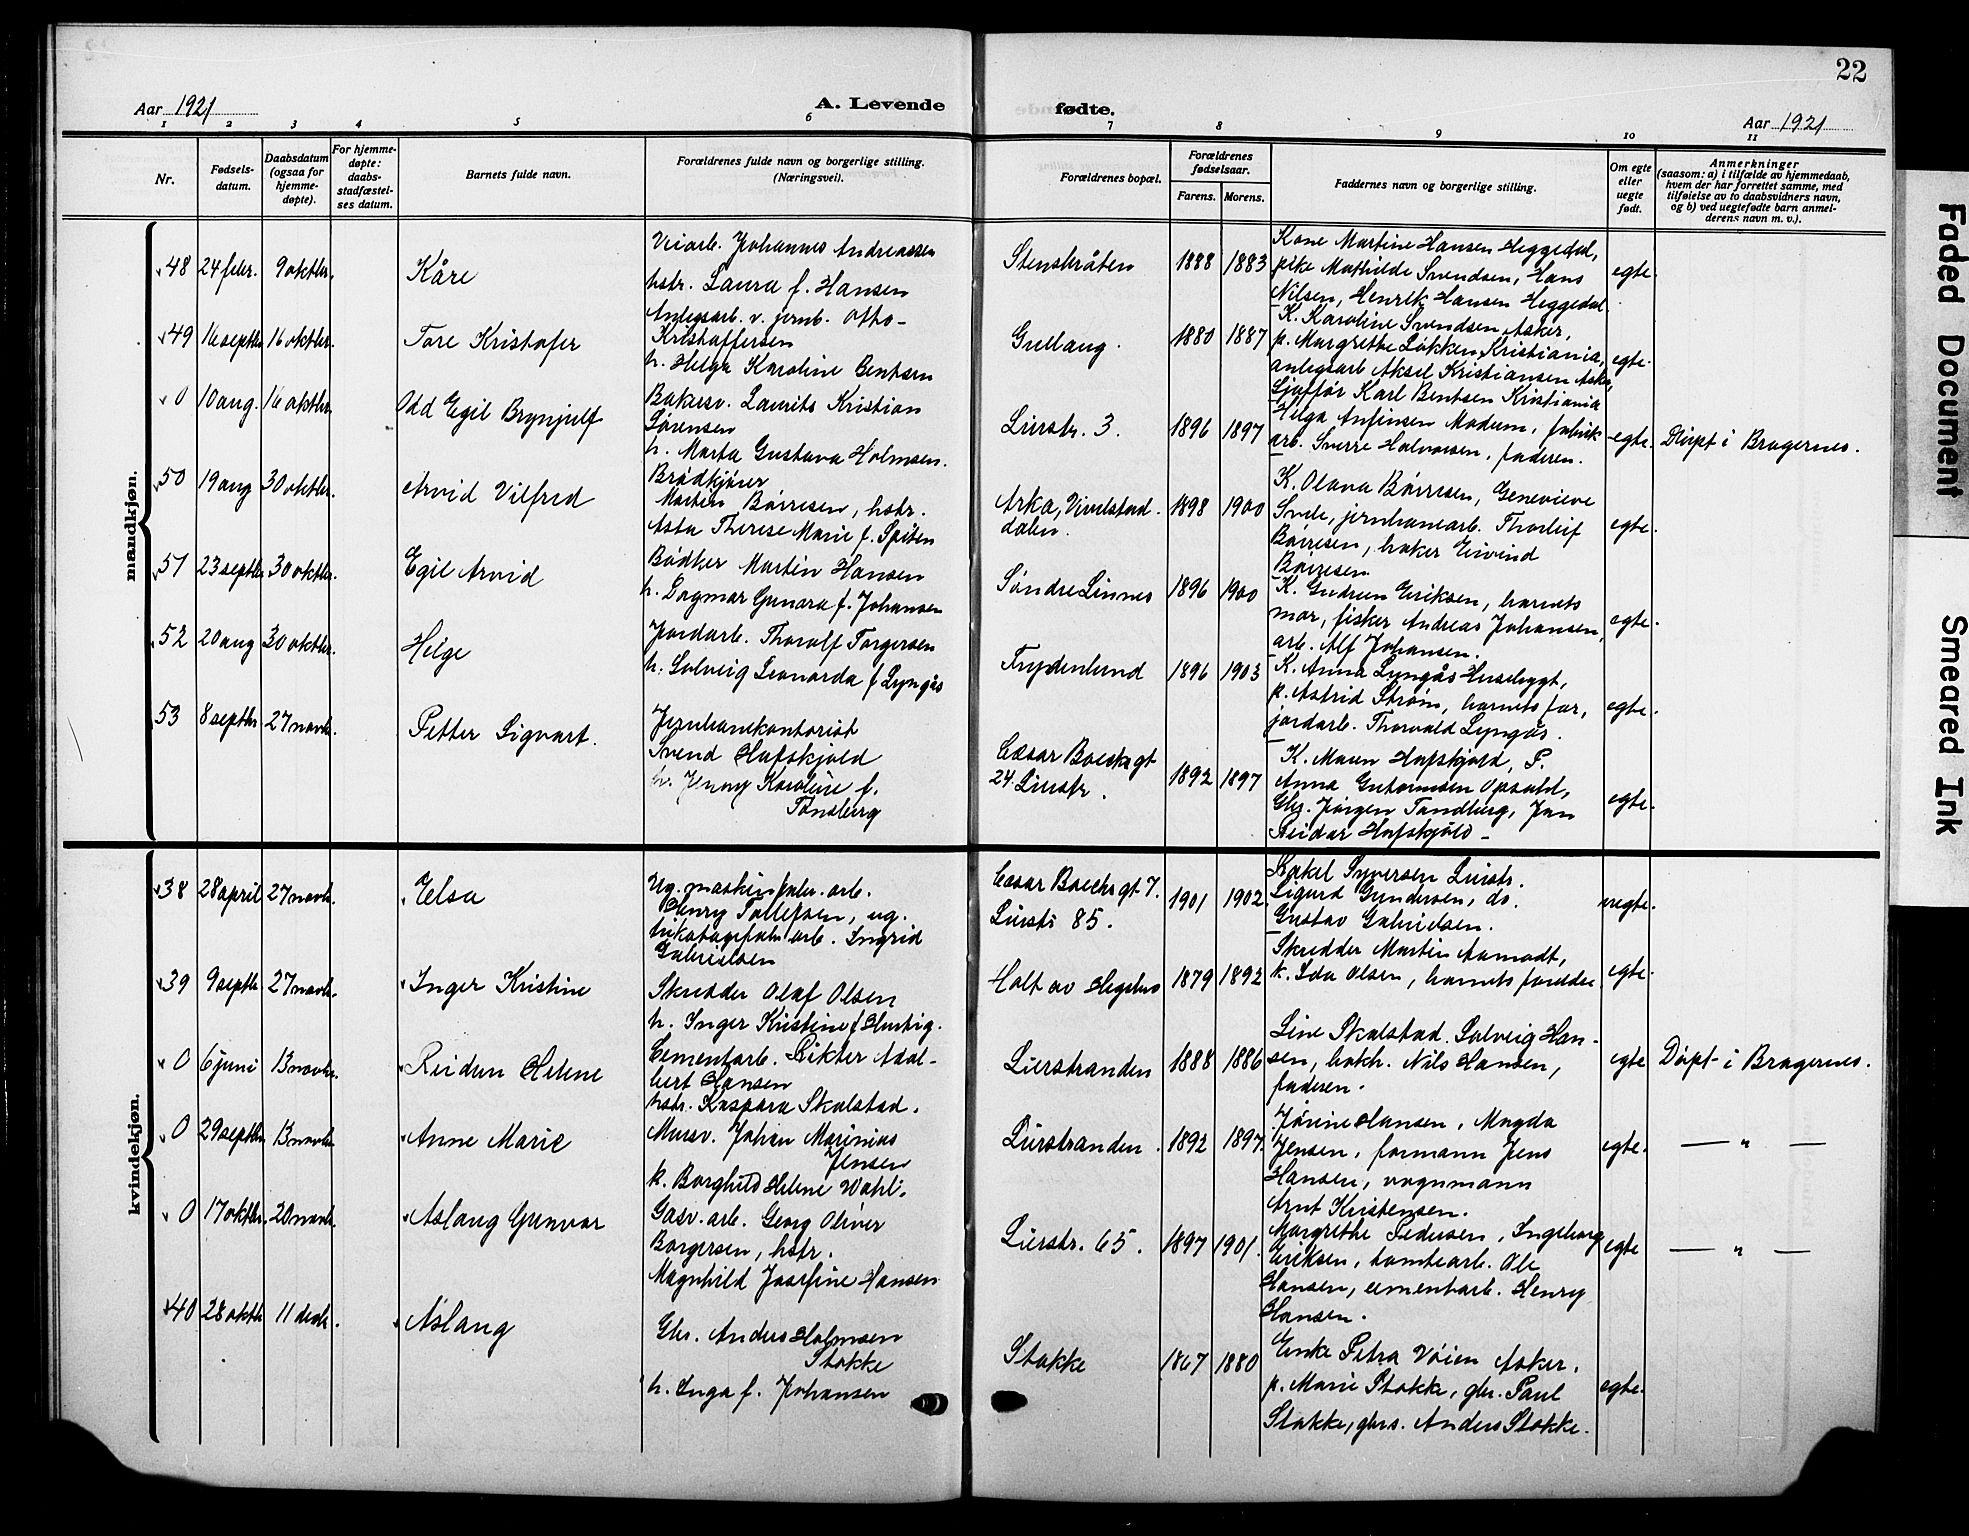 22
Aar 1921
A. Levende
fødte.
Aar 1921
1 2 3 4 5 6 7 8 9 10 11
Nr.
Fødsels-
datum.
Daabsdatum
(ogsaa for
hjemme-
døpte).
For hjemme-
døpte:
daabs-
stadfæstel-
ses datum.
Barnets fulde navn.
Forældrenes fulde navn og borgerlige stilling.
(Næringsvei).
Forældrenes bopæl.
Forældrenes
fødselsaar.
Farens. Morens.
Faddernes navn og borgerlige stilling.
Om egte
eller
uegte
født.
Anmerkninger
(saasom: a) i tilfælde av hjemmedaab,
hvem der har forrettet samme, med
tilføielse av to daabsvidners navn,
og b) ved uegtefødte barn anmel-
derens navn m. v.).
mandkjøn.
48 24 febr. 9 oktbr.
Kåre
Veiarb. Johannes Andreassen
hstr. Laura f. Hansen
Stensbråten
1888 1883
Kone Martine Hansen Heggedal,
pike Mathilde Svendsen, Hans
Nilsen, Henrik Hansen Heggedal
egte.
49 16 septbr 16 oktbr.
Tore Kristofer
Anlegsarb. v. jernb. Otto
Kristoffersen
h. Helga Karoline Bentsen
Gullaug.
1880 1887
K. Karoline Svendsen Asker,
p. Margrethe Løkken Kristiania,
anlegsarb Aksel Kristiansen Asker,
Sjaffør Karl Bentsen Kristiania
egte.
0 10 aug. 16 oktbr.
Odd Egil Brynjulf
Bakersv. Laurits Kristian
Sørensen
h. Marta Gustava Holmsen.
Lierstr. 3.
1896 1897
Helga Anfinsen Modum, fabrik
arb. Sverre Halvorsen, faderen.
egte
Døpt i Bragernes.
50 19 aug 30 oktbr.
Arvid Vilfred
Brødkjører
Martin Børresen, hstr.
Asta Therese Marie f. Spiten
Arka, Vivelstad
dalen.
1898 1900
K. Olava Børresen, Genevieve
jernbanearb. Thorleif
Børresen, baker Eivind
Børresen
egte.
51 23 septbr 30 oktbr.
Egil Arvid
Bødker Martin Hansen
h. Dagmar Gunara f. Johansen
Søndre Linnes
1896 1900
K. Gudrun Eriksen, barnets
mor, fisker Andreas Johansen,
arb. Alf Johansen.
egte.
52 20 aug 30 oktbr.
Helge
Jordarb. Thorolf Torgersen
h. Solveig Leonarda f Lyngås
Frydenlund
1896 1903
K. Anna Lyngås Husebygt,
p. Astrid Strøm, barnets far,
jordarb. Thorvald Lyngås.
egte.
53 8 septbr 27 novbr.
Petter Sigvart.
Jernbanekontorist
Svend Hafskjold
h. Jenny Karoline f.
Tønsberg
Cæsar Boecks gt
24 Lierstr.
1892 1897
K. Hafskjold, P.
Anna Gutormsen Opsahl,
Gbr. Jørgen Tandberg, Jan
Reidar Hafskjold
egte.
kvindekjøn.
38 28 april 27 novbr.
Elsa
Ug. maskinfabr. arb.
Henry Tollefsen, ug.
trikotagefabr arb. Ingrid
Gabrielsen
Cæsar Boecks gt 7.
Lierstr 85.
1901 1902
Rakel Syversen Lierstr.
Sigurd Gundersen, do.
Gustav Gabrielsen.
uegte.
39 9 septbr 27 novbr.
Inger Kristine
Skredder Olaf Olsen
h. Inger Kristine f Hurtig.
Holt av Hegsbro
1879 1892
Skredder Martin Aamodt,
k. Ida Olsen, barnets foreldre
egte.
0 6 juni 13 novbr.
Reidun Helene
Cementarb. Rikter Adal-
bert Hansen
hstr. Kaspara Skalstad.
Lierstranden
1888 1886
Line Skalstad. Solveig Han-
sen, bokh. Nils Hansen,
faderen.
egte
Døpt i Bragernes.
0 29 septbr 13 novbr
Anne Marie
Mursv. Johan Marinius
Jensen
k. Borghild Helene Wahl.
Lierstranden.
1892 1897.
Jørine Hansen, Magda
Jensen, formann Jens
Hansen, vognmann
Arnt Kristensen.
egte.
— " —
0 17 oktbr. 20 novbr.
Aslaug Gunvor
Gasv. arb. Georg Oliver
Borgersen, hstr.
Magnhild Josefine Hansen
Lierstr. 65.
1897 1901.
Margrethe Pedersen, Ingeborg
Eriksen, tomtearb. Ole
Hansen, cementarb. Henry
Hansen.
egte
— " —
40 28 oktbr 11 decbr.
Aslaug
Gbr. Anders Holmsen
Stokke
h. Inga f. Johansen
Stokke
1867 1880
Enke Petra Vøien Asker.
p. Marie Stokke, gbr. Paul
Stokke, gbrs. Anders Stokke.
egte.
Faded Document
Smeared Ink